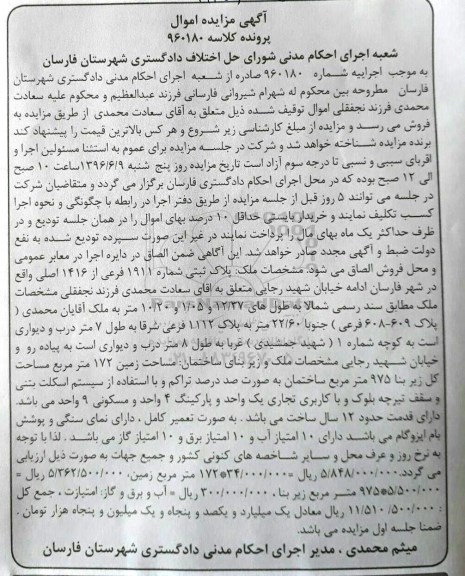 آگهی مزایده اموال
پرونده کلاسه ۹۶۰۱۸۰
شعبه اجرای احکام مدنی شورای حل اختلاف دادگستری شهرستان فارسان
به موجب اجراییه شماره ۹۶۰۱۸۰ صادره از شعبه اجرای احکام مدنی دادگستری شهرستان
فارسان مطروحه بین محکوم له شهرام شیروانی فارسانی فرزند عبدالعظیم و محکوم علیه سعادت
محمدی فرزند نجفقلی اموال توقیف شده ذیل متعلق به آقای سعادت محمدی از طریق مزایده به
فروش می رسد و مزایده از مبلغ کارشناسی زیر شروع و هر کس بالاترین قیمت را پیشنهاد کند
برنده مزایده شناخته خواهد شد و شرکت در جلسه مزایده برای عموم به استثنا مسئولین اجرا و
اقربای سببی و نسبی تا درجه سوم آزاد است تاریخ مزایده روز پنج شنبه ۱۳۹۶/۶/۹ ساعت ۱۰ صبح
الی ۱۲ صبح بوده که در محل اجرای احکام دادگستری فارسان برگزار می گردد و متقاضیان شرکت
در جلسه می توانند ۵ روز قبل از جلسه مزایده از طریق دفتر اجرا در رابطه با چگونگی و نحوه اجرا
کسب تکلیف نمایند و خریدار بایستی حداقل ۱۰ درصد بهای اموال را در همان جلسه تودیع و در
ظرف حداکثر یک ماه بهای اموال را پرداخت نمایند در غیر این صورت سپرده تودیع شده به نفع
دولت ضبط و آگهی مجدد صادر خواهد شد. این آگهی ضمن الصاق در دایره اجرا در معابر عمومی
و محل فروش الصاق می شود. مشخصات ملک: پلاک ثبتی شماره ۱۹۱۱ فرعی از ۱۴۱۶ اصلی واقع
در شهر فارسان ادامه خیابان شهید رجایی متعلق به آقای سعادت محمدی فرزند نجفقلی مشخصات
ملک مطابق سند رسمی شمالا به طول های ۱۲/۳۷ و ۱/۰۵ و ۱۰/۲۰ متر به ملک آقایان محمدی (
پلاک ۶۰۹-۶۰۸ فرعی ) جنوبا ۲۲/۶۰ متر به پلاک ۱۱۱۲ فرعی شرقا به طول ۷ متر درب و دیواری
است به کوچه شماره ۱ ( شهید جمشیدی ) غربا به طول ۸ متر درب و دیواری است به پیاده رو و
خیابان شهید رجایی مشخصات ملک و زیر بنای ساختمان: مساحت زمین ۱۷۲ متر مربع مساحت
کل زیر بنا ۹۷۵ متر مربع ساختمان به صورت صد درصد تراکم و با استفاده از سیستم اسکلت بتنی
و سقف تیرچه بلوک و با کاربری تجاری یک واحد و پارکینگ ۴ واحد و مسکونی ۹ واحد می باشد.
دارای قدمت حدود ۱۲ سال ساخت می باشد . به صورت تعمیر کامل ، دارای نمای سنگی و پوشش
بام ایزوگام می باشد دارای ۱۰ امتیاز آب و ۱۰ امتیاز برق و ۱۰ امتیاز گاز می باشد . لذا با توجه
به نرخ روز و عرف محل و سایر شاخصه های کنونی کشور و جمیع جهات به صورت ذیل ارزیابی
می گردد. ۵/۸۴۸/۰۰۰/۰۰۰ ریال =۳۴/۰۰۰/۰۰۰*۱۷۲ متر مربع زمین، ۵/۳۶۲/۵۰۰/۰۰۰ ریال =
۵/۵۰۰/۰۰۰*۹۷۵ متر مربع زیر بنا ، ۳۰۰/۰۰۰/۰۰۰ ریال = آب و برق و گاز: امتیازت ، جمع کل
: ۱۱/۵۱۰/۵۰۰/۰۰۰ ریال معادل یک میلیارد و یکصد و پنجاه و یک میلیون و پنجاه هزار تومان .
ضمنا جلسه اول مزایده می باشد.
میثم محمدی ، مدیر اجرای احکام مدنی دادگستری شهرستان فارسان